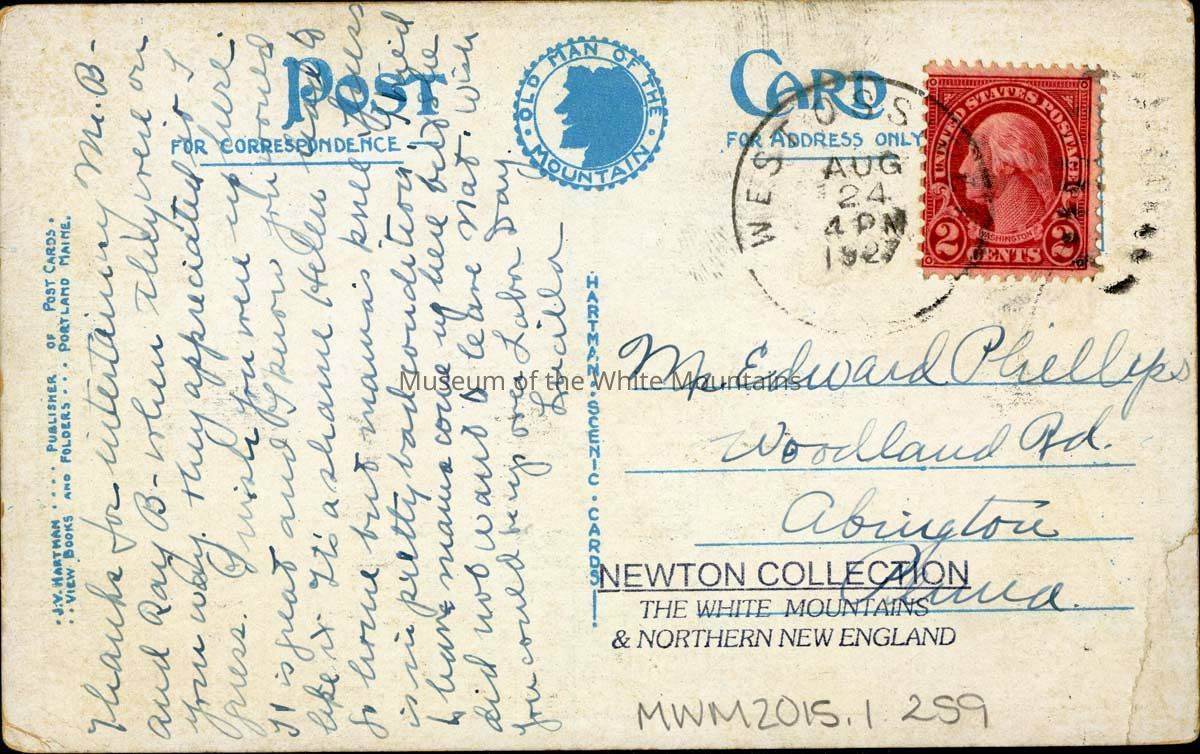 POST CARD
FOR CORRESPONDENCE
OLD MAN OF THE MOUNTAIN
FOR ADDRESS ONLY
WEST OSS
AUG
24
4 PM
1927
UNITED STATES POSTAGE
WASHINGTON
2 CENTS 2
J.V. HARTMAN . . . PUBLISHER OF POST CARDS .
VIEW BOOKS AND FOLDERS . . . PORTLAND MAINE.
HARTMAN · SCENIC · CARDS
Thanks for entertaining M. B-
and Ray B- when they were on
your way. They appreciated it I
guess. I wish you were up here.
It is great and I know you would
like it. It's a shame Helen had
to go home but mama's knee
is in pretty bad condition. I tried
to have mama come up here but she
did not want to leave Nat. Wish
you could be up over Labor Day
Lucilla
Mr. Edward Phillips
Woodland Rd.
Abington
Penna.
Museum of the White Mountains
NEWTON COLLECTION
THE WHITE MOUNTAINS
& NORTHERN NEW ENGLAND
MWM2015.1.259